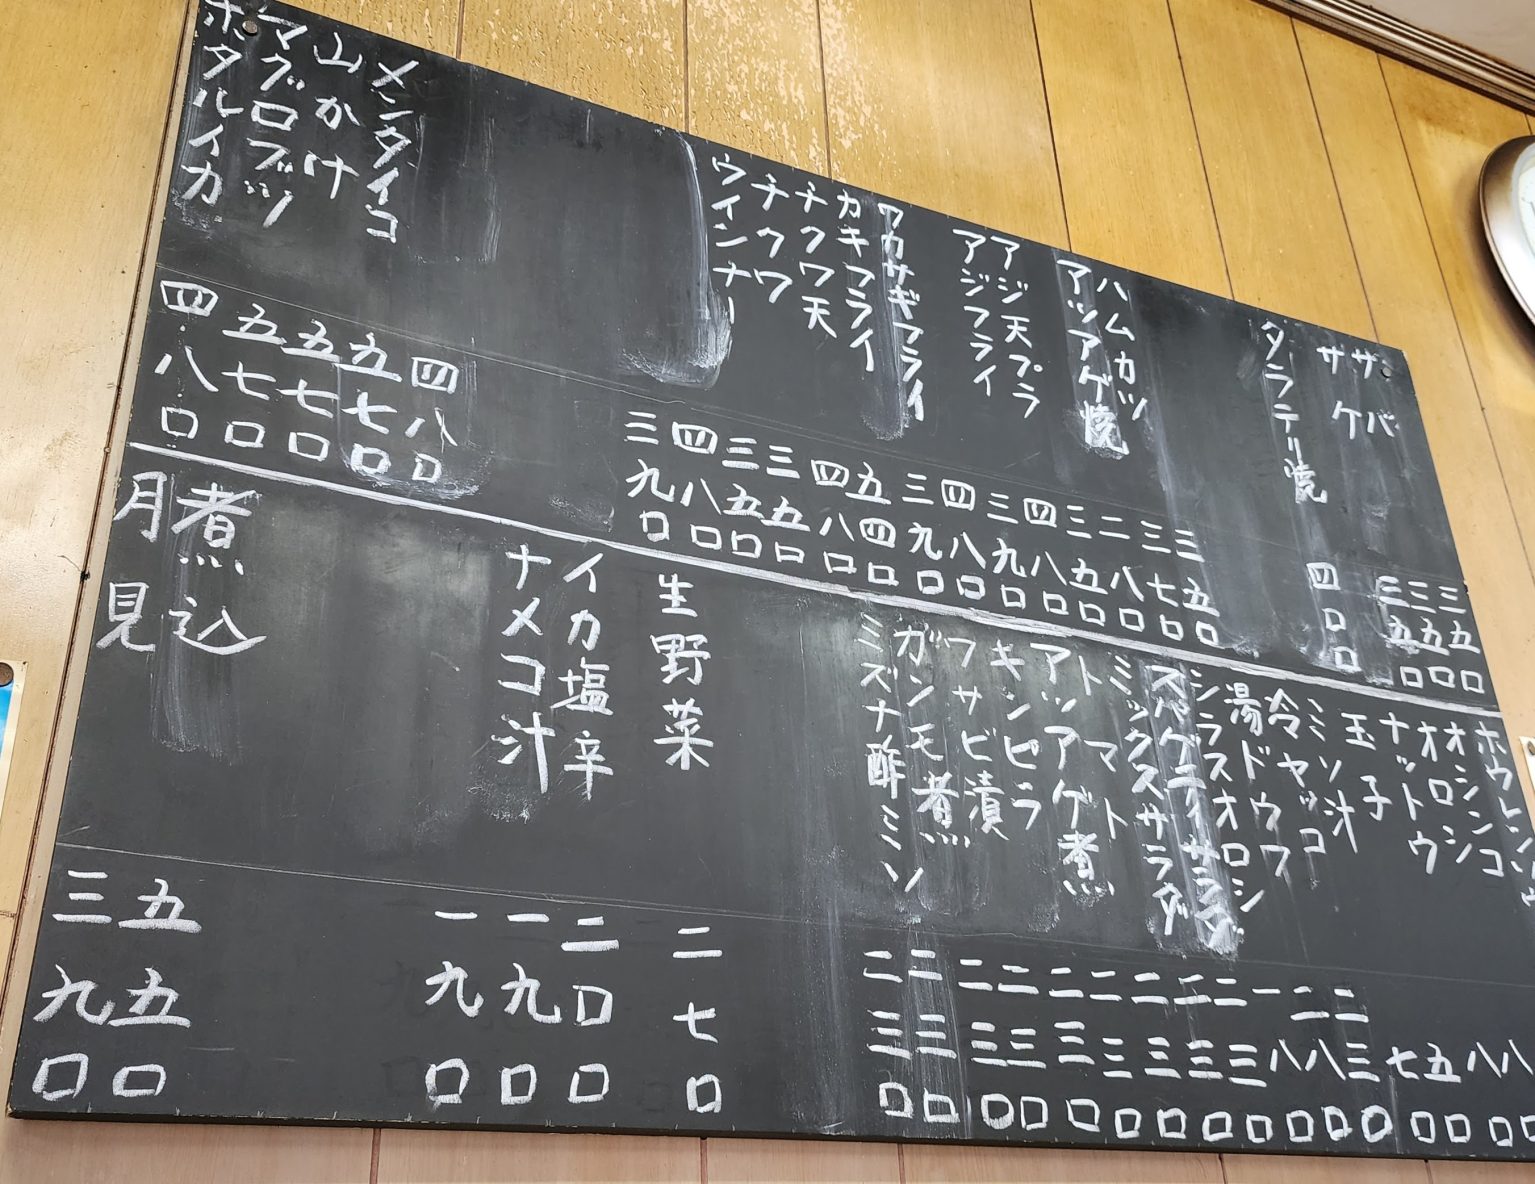 サバ
サケ
タラテリ焼
ハムカツ
アツアゲ焼
アジ天プラ
アジフライ
ワカサギフライ
カキフライ
チクワ天
チクワ
ウインナー
メンタイコ
山かけ
マグロブツ
ホタルイカ
三五〇
三五〇
三五〇
四〇〇
三五〇
三七〇
二八〇
三五〇
四八〇
三九〇
四八〇
三九〇
五四〇
四八〇
三五〇
三五〇
四八〇
三九〇
四八〇
五七〇
五七〇
五七〇
四八〇
ホウレンソウ
オシンコ
オロシ
ナットウ
玉子
ミソ汁
冷ヤッコ
湯ドウフ
シラスオロシ
スパゲティサラダ
ミックスサラダ
トマト
アツアゲ煮
キンピラ
ワサビ漬
ガンモ煮
ミズナ酢ミソ
生野菜
イカ塩辛
ナメコ汁
煮込
月見
八〇
八〇
五〇
七〇
二三〇
二八〇
一八〇
二三〇
二三〇
二三〇
二三〇
二三〇
二三〇
二三〇
二三〇
二三〇
二七〇
二〇〇
一九〇
一九〇
五五〇
三九〇